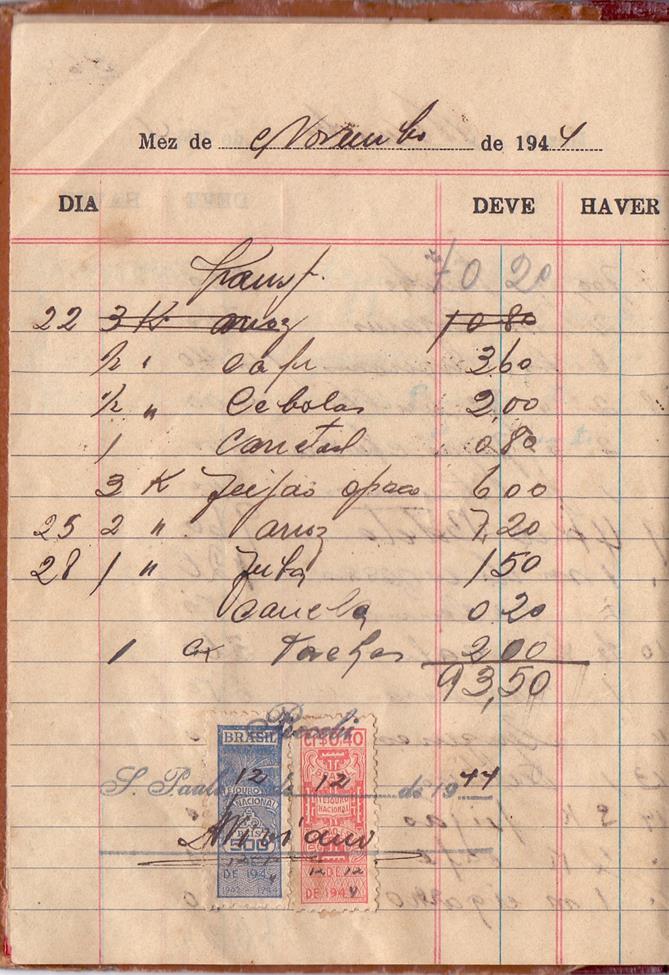 Mez de Novembro de 1944
DIA DEVE HAVER
Transp. 70 20
22 3 K arroz 10 80
1/2 " café 3 60
1/2 " Cebolas 2,00
1 0 80
3 K Feijão opaco 6 00
25 2 " arroz 7,20
28 1 " Fubá 1 50
Canela 0 20
1 cx Tachas 2 00
93,50
Recebi
BRASIL Cr$0,40
S. Paulo 12 de 12 de 1944
TESOURO NACIONAL TESOURO NACIONAL
500
DE 1944 DE 1944
1942 - 1944